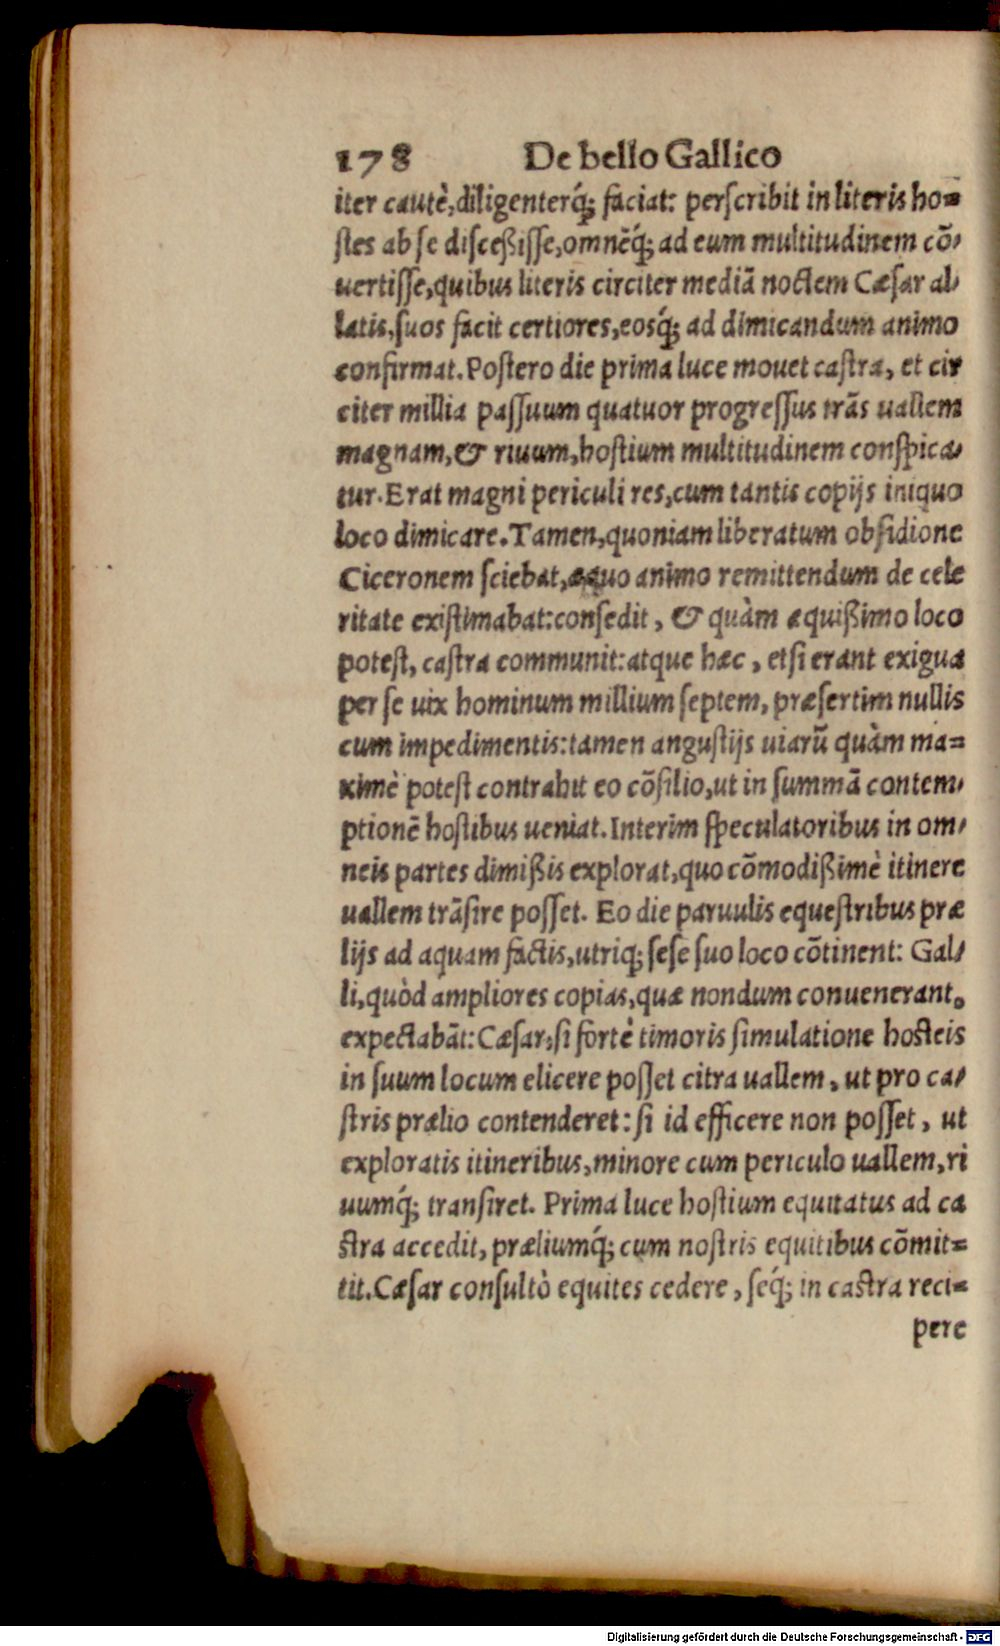 178 De bello Gallico
iter cautè,diligenterq́; faciat: perſcribit in literis ho=
ſtes ab ſe diſceßiſſe,omnẽq́; ad eum multitudinem cõ-
uertiſſe,quibus literis circiter mediã noctem Cæſar al-
latis,ſuos facit certiores,eosq́; ad dimicandum animo
confirmat.Poſtero die prima luce mouet caſtra, et cir
citer millia paſſuum quatuor progreſſus trãs uallem
magnam,& riuum,hoſtium multitudinem conſpica-
tur.Erat magni periculi res,cum tantis copijs iniquo
loco dimicare.Tamen,quoniam liberatum obſidione
Ciceronem ſciebat,æquo animo remittendum de cele
ritate exiſtimabat:conſedit, & quàm æquißimo loco
poteſt, caſtra communit:atque hæc, etſi erant exigua
per ſe uix hominum millium ſeptem, præſertim nullis
cum impedimentis:tamen anguſtijs uiarũ quàm ma=
ximè poteſt contrahit eo cõſilio,ut in ſummã contem-
ptionẽ hoſtibus ueniat.Interim ſpeculatoribus in om-
neis partes dimißis explorat,quo cõmodißimè itinere
uallem trãſire poſſet. Eo die paruulis equeſtribus præ
lijs ad aquam factis,utriq; ſeſe ſuo loco cõtinent: Gal-
li,quòd ampliores copias,quæ nondum conuenerant,
expectabãt:Cæſar,ſi fortè timoris ſimulatione hoſteis
in ſuum locum elicere poſſet citra uallem, ut pro ca-
ſtris prælio contenderet:ſi id efficere non poſſet, ut
exploratis itineribus,minore cum periculo uallem,ri
uumq́; tranſiret. Prima luce hoſtium equitatus ad ca
ſtra accedit, præliumq́; cum noſtris equitibus cõmit=
tit.Cæſar conſultò equites cedere, ſeq́; in caſtra reci=
pere
Digitalisierung gefördert durch die Deutsche Forschungsgemeinschaft - DFG